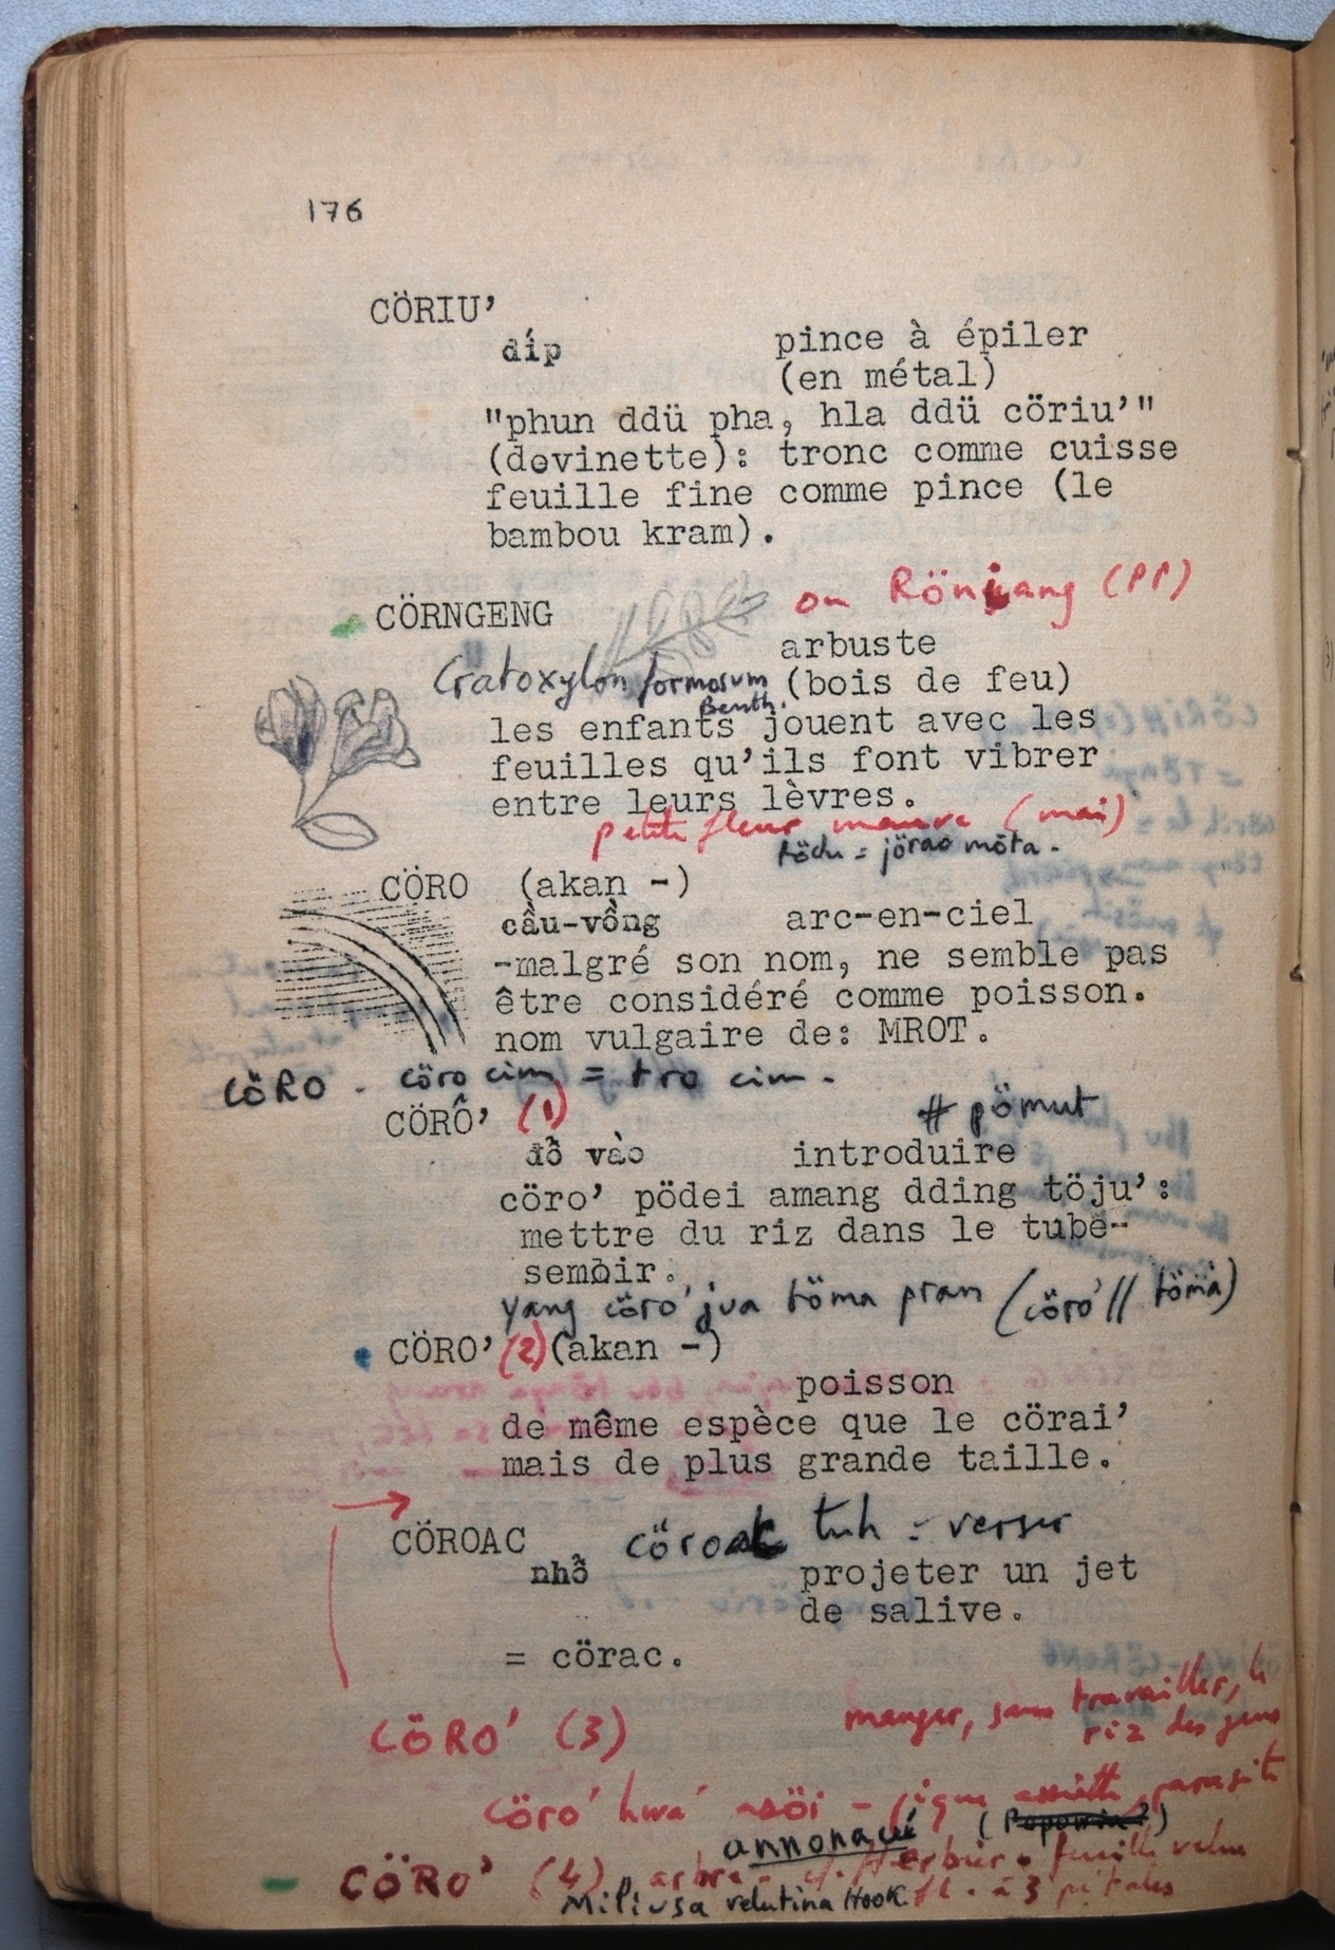 176
CÖRIU’
díp pince à épiler
(en métal)
"phun ddü pha, hla ddü cöriu’"
(devinette): tronc comme cuisse
feuille fine comme pince (le
bambou kram).
ou Röngang (PP)
CÖRNGENG
arbuste
Cratoxylon formosum (bois de feu)
Benth.
les enfants jouent avec les
feuilles qu’ils font vibrer
entre leurs lèvres.
petite fleur mauve (mai)
töchu = jörao möta.
CÖRO (akan -)
cầu-vồng arc-en-ciel
-malgré son nom, ne semble pas
être considéré comme poisson.
nom vulgaire de: MROT.
CÖRO - cöro cim = tro cim.
CÖRÔ’ (1) # pömut
đồ vào introduire
cöro’ pödei amang dding töju’:
mettre du riz dans le tube-
semoir.
yang cöro’ jua töma pran (cöro’ // tömà)
CÖRO’ (2) (akan -)
poisson
de même espèce que le cörai’
mais de plus grande taille.
CÖROAC cöroak tuh = verser
nhổ projeter un jet
de salive.
= cörac.
manger, sans travailler, le
riz des gens
CÖRO’ (3)
cöro’ hwa’ asöi - pique assiette, parasite
annonacé
CÖRO’ (4) arbre - cf. Herbier. feuille velue
Miliusa velutina Hook. fl. à 3 pétales